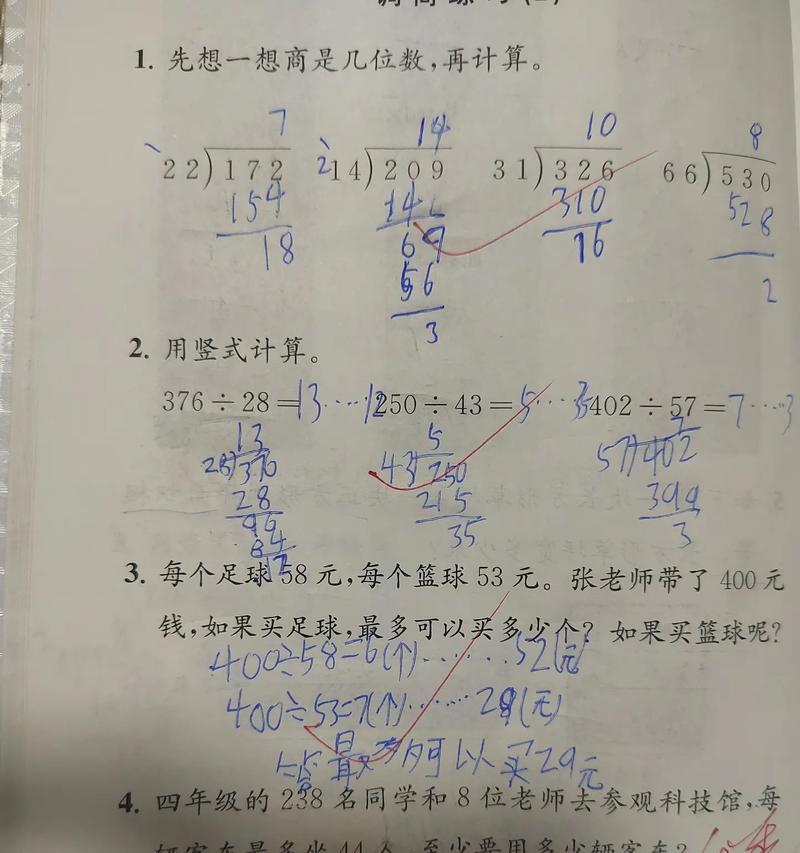 调商练习(2)
1. 先想一想商是几位数,再计算。
7 14 10 8
22)172 214)209 31)326 66)530
154 14 310 528
18 69 16 2
56
3
2. 用竖式计算。
376÷28=13……12 250÷43=5…35 402÷57=7…3
13 5 7
28)376 43)250 57)402
28 215 399
96 35 3
84
12
3. 每个足球58元,每个篮球53元。张老师带了400元
钱,如果买足球,最多可以买多少个?如果买篮球呢?
400÷58=6(个)……52(元)
400÷53=7(个)……29(元)
答最多可以买29元
4. 四年级的238名同学和8位老师去参观科技馆,每
辆客车最多坐44人,至少要用多少辆客车?